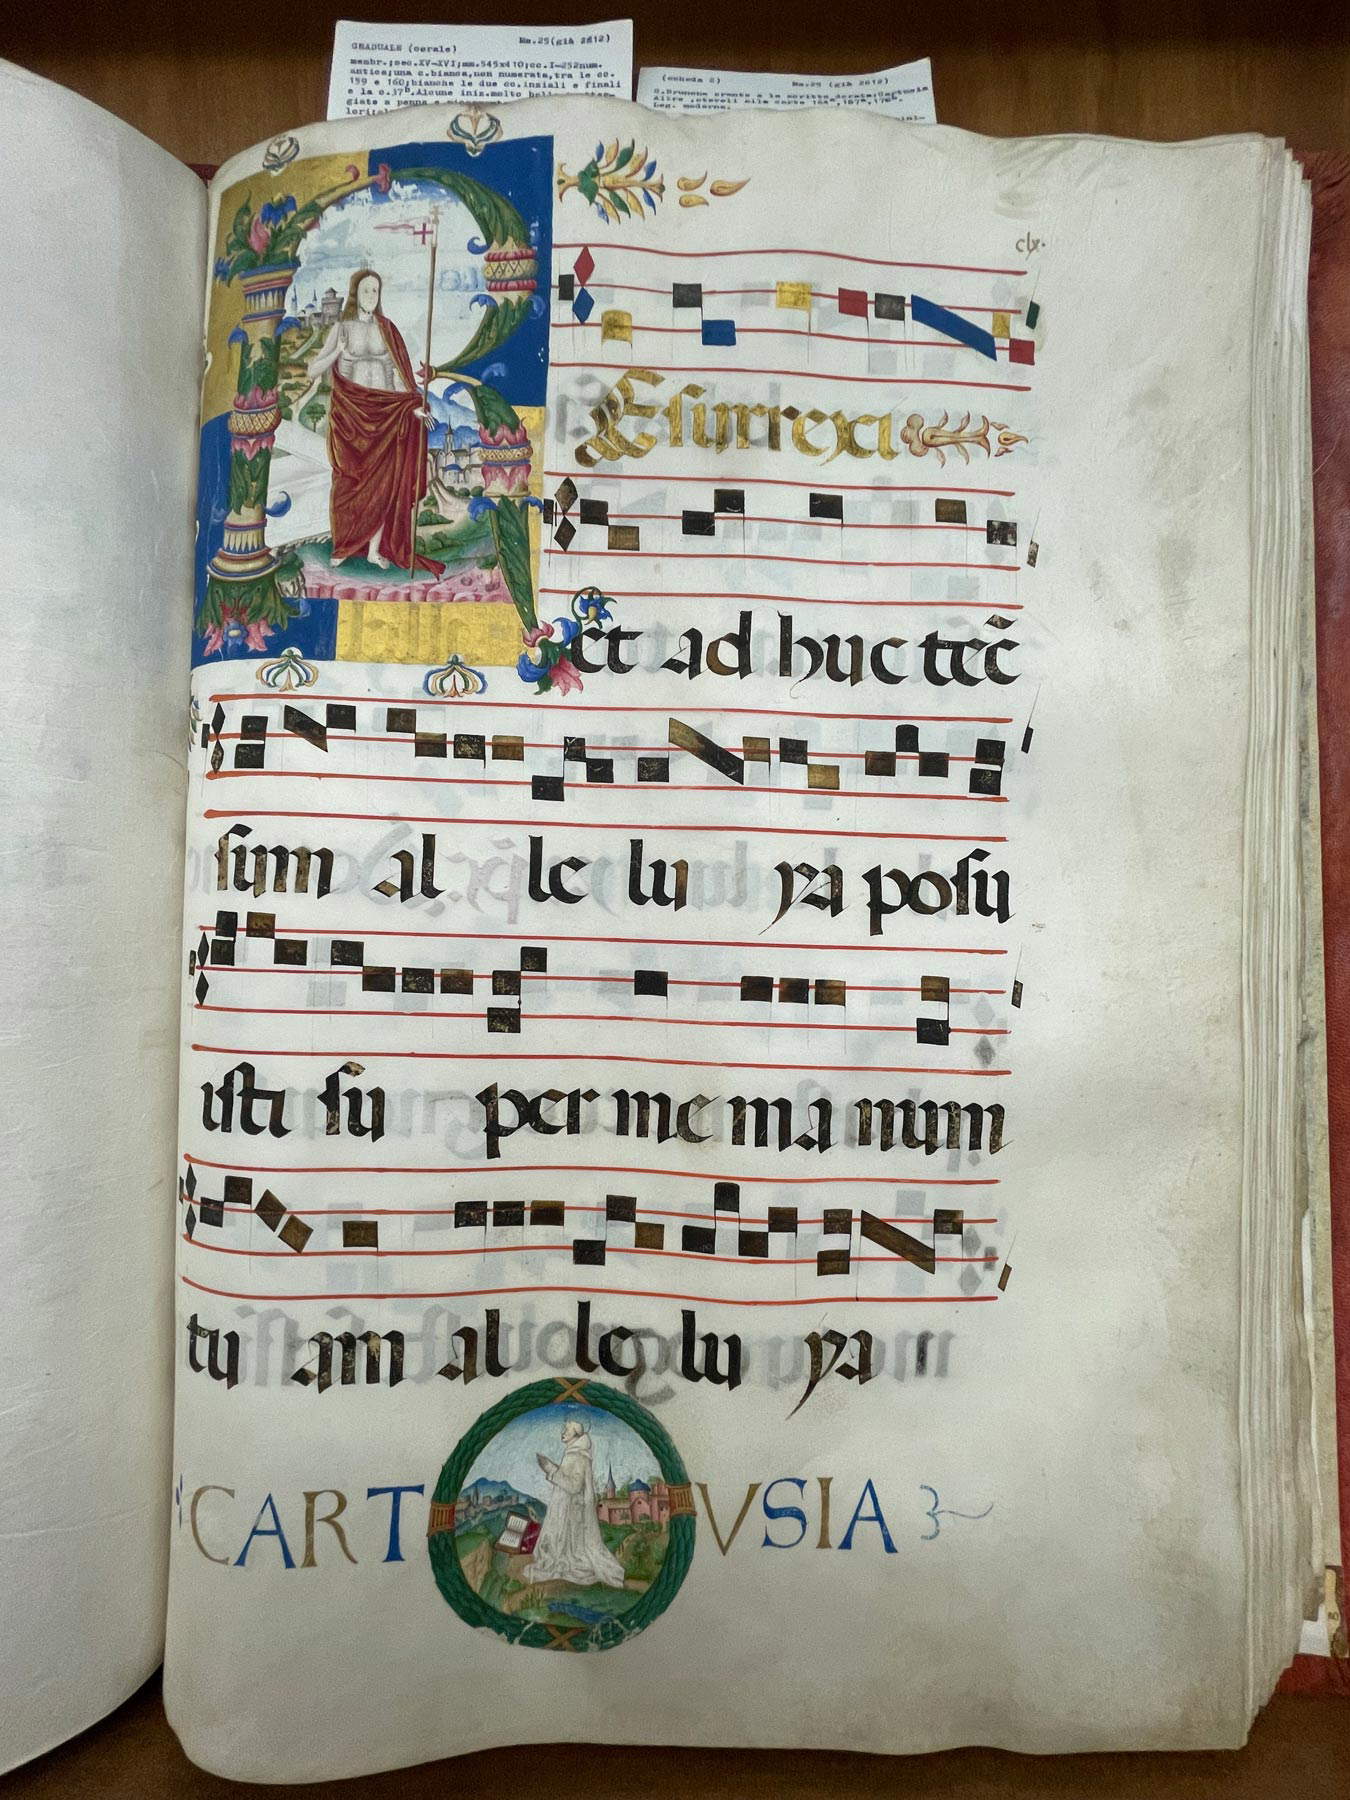 GRADUALE (corale) Ms.25(già 2612)
membr.;sec.XV-XVI;mm.545x410;cc.I-252num.
antica;una c.bianca,non numerata,tra le cc.
159 e 160;bianche le due cc.inziali e finali
e la c.37b.Alcune iniz.molto belle
(scheda 2) Ms.25 (già 2612)
S.Brunone orante e la scritta dorata:Cartusia
Altre notevoli alle carte
Leg. moderna.
clx.
REsurrexi
et ad huc tecũ
sum al le lu ya posu
isti su per me ma num
tu am al le lu ya
CARTVSIA